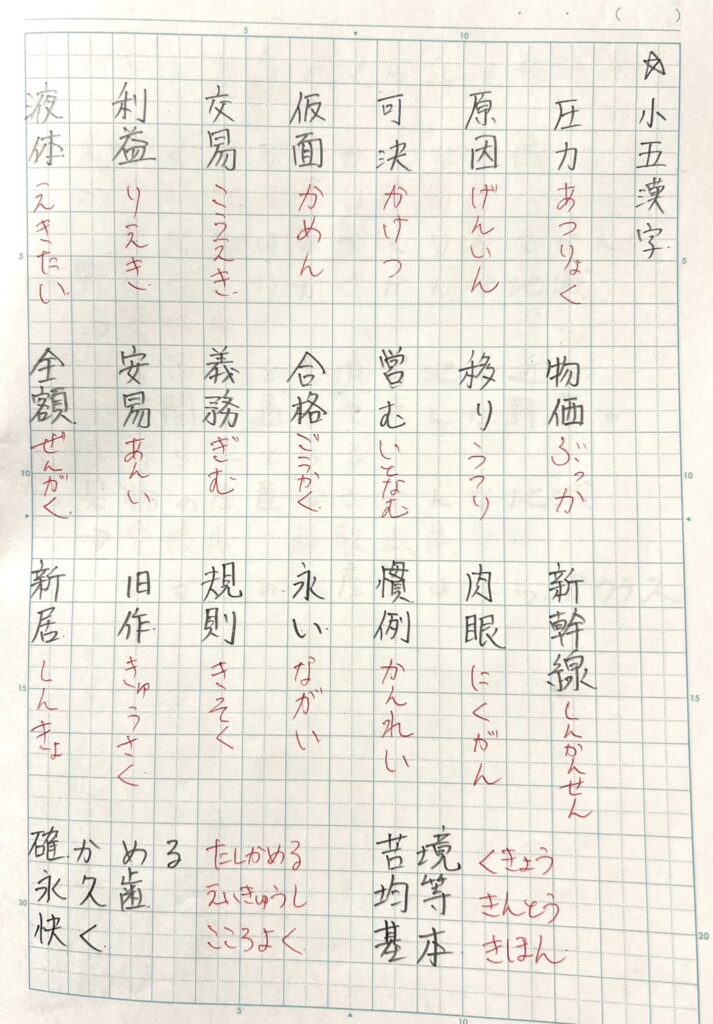 ☆小五漢字
圧力 あつりょく
原因 げんいん
可決 かけつ
仮面 かめん
交易 こうえき
利益 りえき
液体 えきたい
物価 ぶっか
移り うつり
営む いとなむ
合格 ごうかく
義務 ぎむ
安易 あんい
全額 ぜんがく
新幹線 しんかんせん
肉眼 にくがん
慣例 かんれい
永い ながい
規則 きそく
旧作 きゅうさく
新居 しんきょ
確かめる たしかめる
永久歯 えいきゅうし
快く こころよく
苦境 くきょう
均等 きんとう
基本 きほん
5
10
( )
5
10
15
20
5
10
15
20
5
10